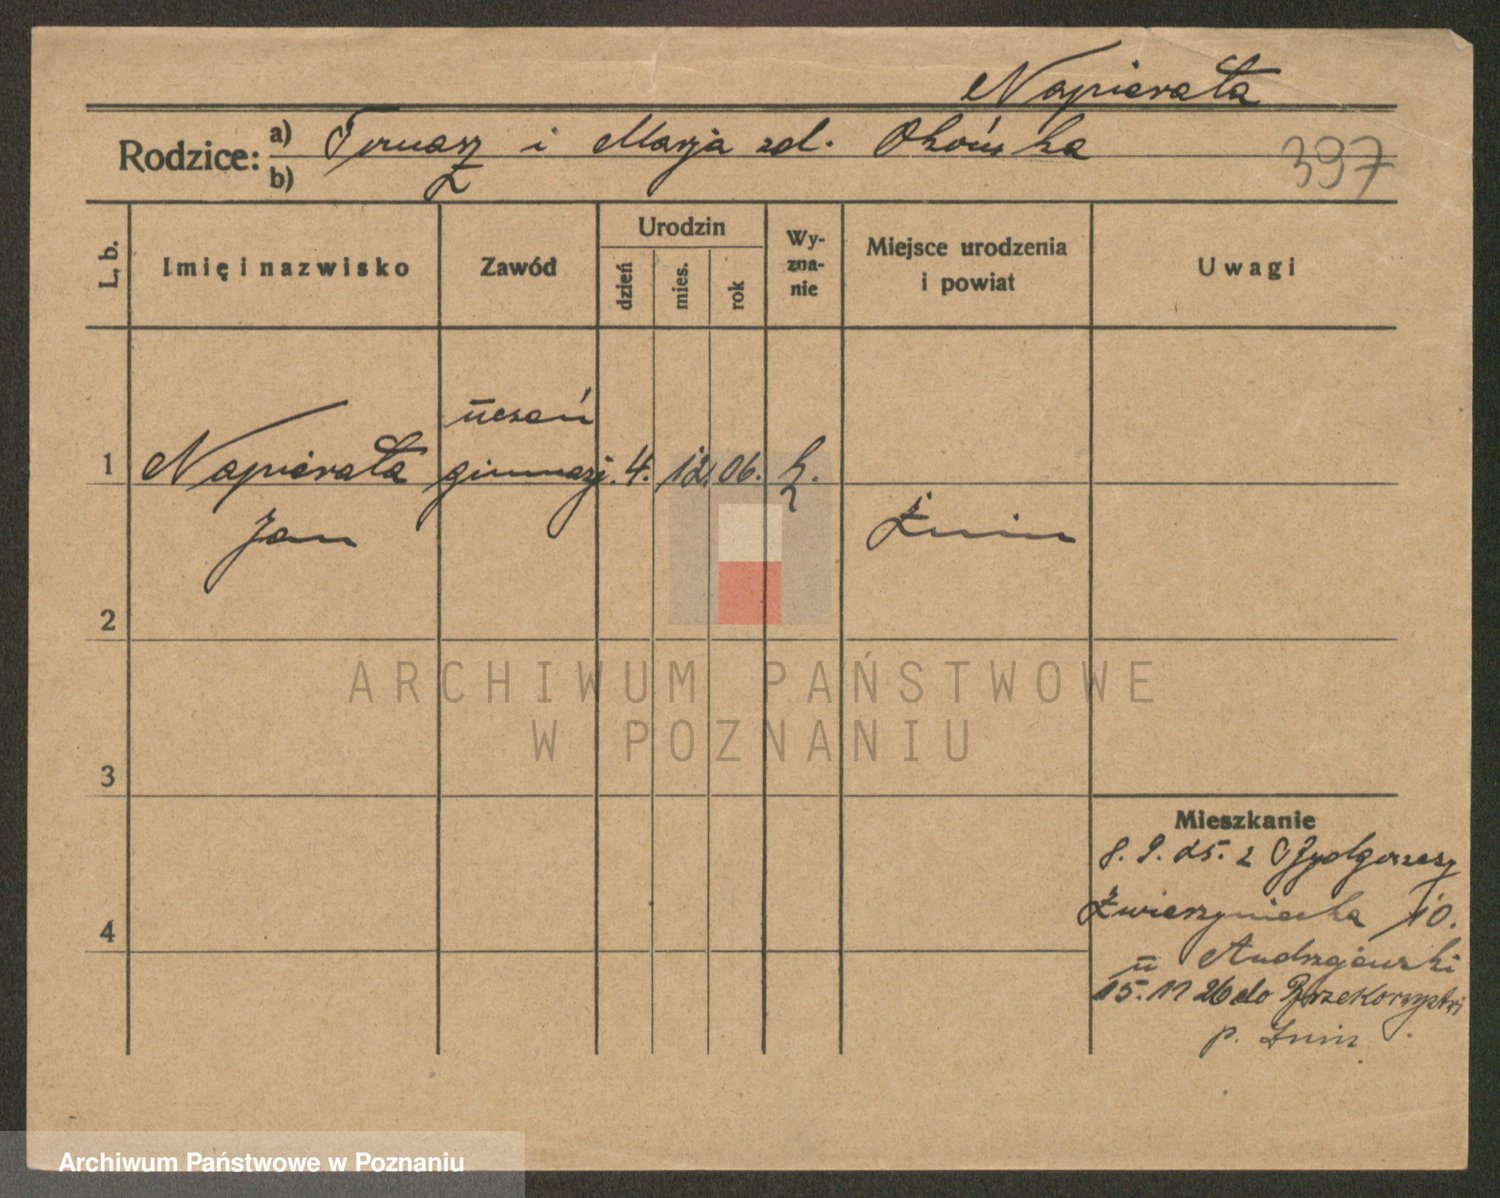 Napierała
Rodzice: a) Tomasz i Marja zd. Okońska
b)
397
L. b.
Imię i nazwisko
Zawód
Urodzin
dzień
mies.
rok
Wy-
zna-
nie
Miejsce urodzenia
i powiat
Uwagi
uczeń
1 Napierała gimnazj. 4. 12. 06. k.
Jan
Żnin
2
ARCHIWUM PAŃSTWOWE
W POZNANIU
3
Mieszkanie
8. 9. 25. z Bydgoszczy
4
Zwierzyniecka 10.
u Andrzejewski
15. 11 26 do
p. Żnin
Archiwum Państwowe w Poznaniu